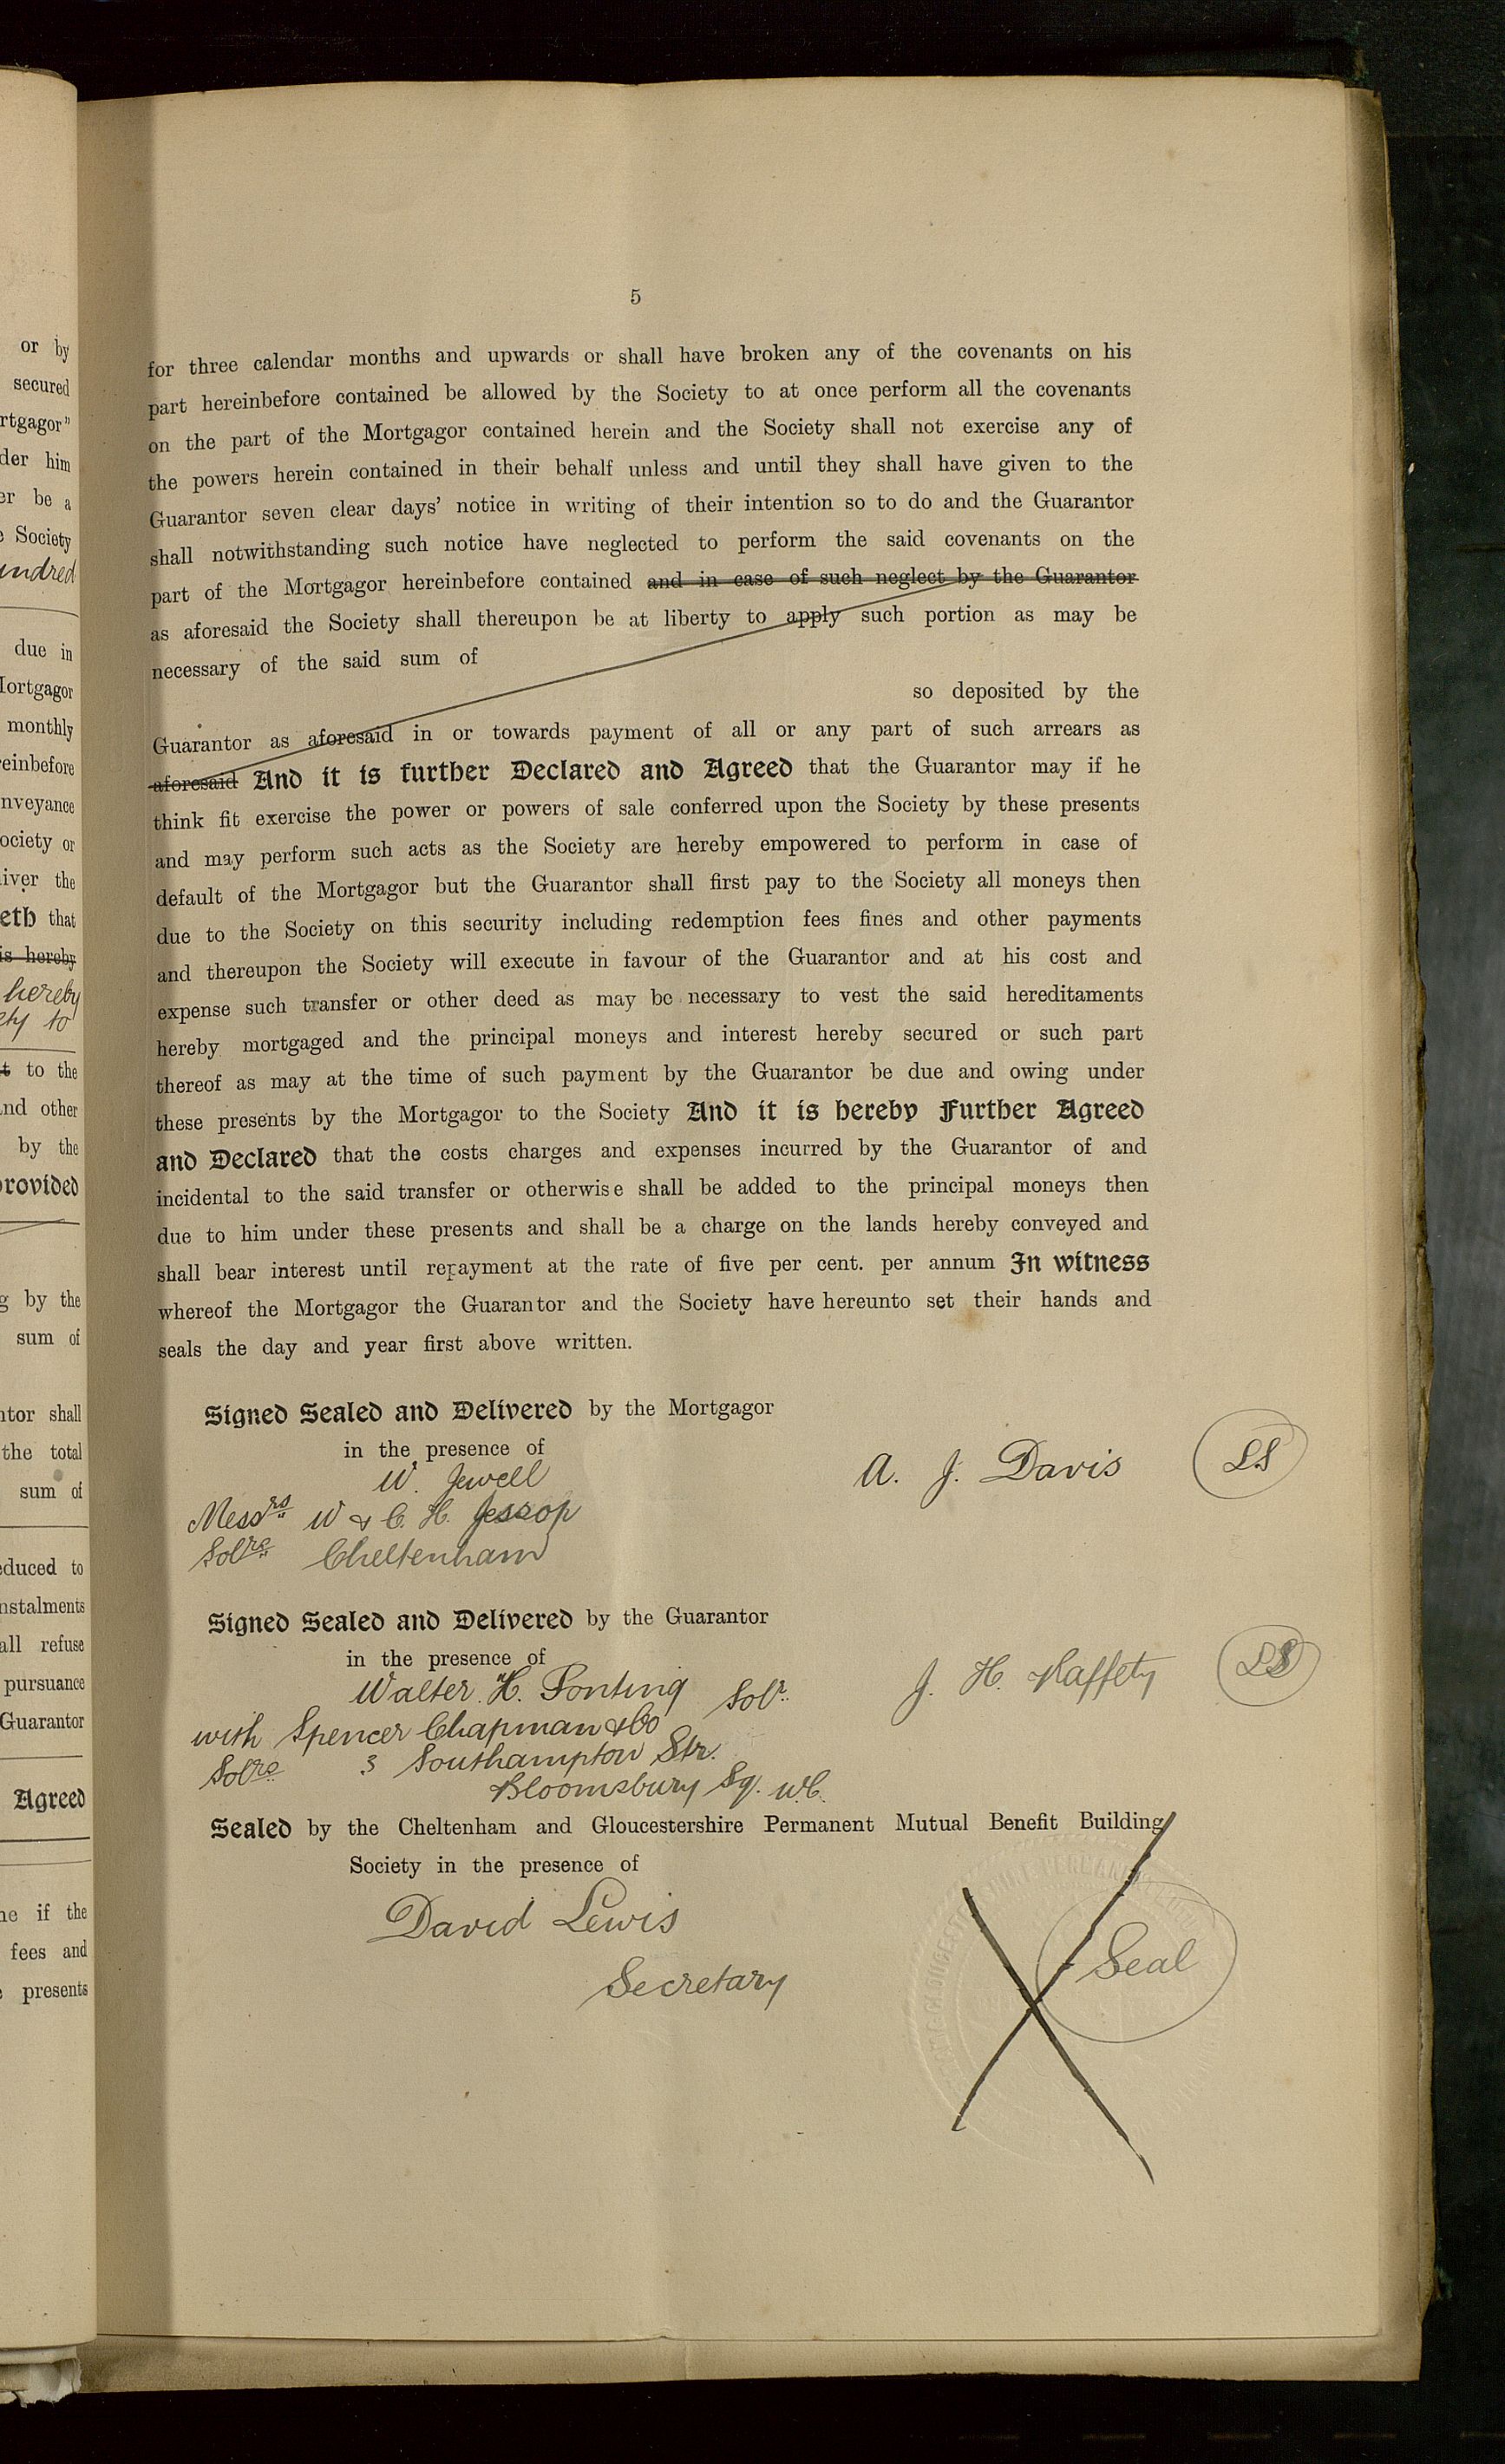 or by
secured
rtgagor"
der him
er be a
Society
undred
due in
Mortgagor
monthly
reinbefore
nveyance
ociety or
iver the
eth that
is hereby
hereby
ety to
t to the
and other
by the
provided
g by the
sum of
ntor shall
the total
sum of
educed to
nstalments
all refuse
pursuance
Guarantor
Agreed
ne if the
fees and
presents
5
for three calendar months and upwards or shall have broken any of the covenants on his
part hereinbefore contained be allowed by the Society to at once perform all the covenants
on the part of the Mortgagor contained herein and the Society shall not exercise any of
the powers herein contained in their behalf unless and until they shall have given to the
Guarantor seven clear days' notice in writing of their intention so to do and the Guarantor
shall notwithstanding such notice have neglected to perform the said covenants on the
part of the Mortgagor hereinbefore contained and in case of such neglect by the Guarantor
as aforesaid the Society shall thereupon be at liberty to apply such portion as may be
necessary of the said sum of
so deposited by the
Guarantor as aforesaid in or towards payment of all or any part of such arrears as
aforesaid And it is further Declared and Agreed that the Guarantor may if he
think fit exercise the power or powers of sale conferred upon the Society by these presents
and may perform such acts as the Society are hereby empowered to perform in case of
default of the Mortgagor but the Guarantor shall first pay to the Society all moneys then
due to the Society on this security including redemption fees fines and other payments
and thereupon the Society will execute in favour of the Guarantor and at his cost and
expense such transfer or other deed as may be necessary to vest the said hereditaments
hereby mortgaged and the principal moneys and interest hereby secured or such part
thereof as may at the time of such payment by the Guarantor be due and owing under
these presents by the Mortgagor to the Society And it is hereby Further Agreed
and Declared that the costs charges and expenses incurred by the Guarantor of and
incidental to the said transfer or otherwise shall be added to the principal moneys then
due to him under these presents and shall be a charge on the lands hereby conveyed and
shall bear interest until repayment at the rate of five per cent. per annum In witness
whereof the Mortgagor the Guarantor and the Society have hereunto set their hands and
seals the day and year first above written.
Signed Sealed and Delivered by the Mortgagor
in the presence of
W. Jewell
Messrs W & C. H. Jessop
Solrs Cheltenham
A. J. Davis LS
Signed Sealed and Delivered by the Guarantor
in the presence of
Walter H. Ponting Solr.
with Spencer Chapman & Co
Solrs 3 Southampton Str.
Bloomsbury Sq. W.C.
J. H. Raffety LS
Sealed by the Cheltenham and Gloucestershire Permanent Mutual Benefit Building
Society in the presence of
David Lewis
Secretary
Seal